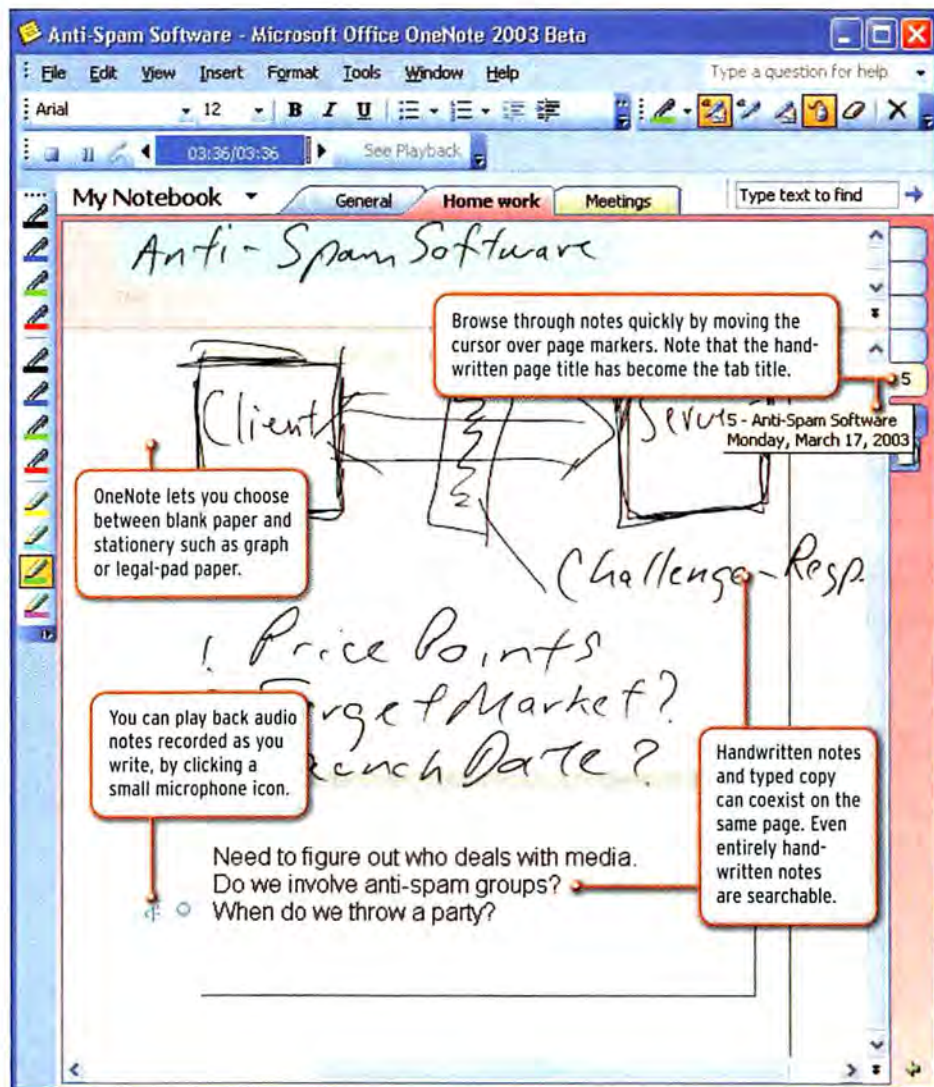 Anti-Spam Software - Microsoft Office OneNote 2003 Beta
File Edit View Insert Format Tools Window Help Type a question for help
Arial 12 B I U
03:36/03:36 See Playback
My Notebook General Home work Meetings Type text to find
Anti-Spam Software
Browse through notes quickly by moving the
cursor over page markers. Note that the hand-
written page title has become the tab title.
5
5 - Anti-Spam Software
Monday, March 17, 2003
Client
OneNote lets you choose
between blank paper and
stationery such as graph
or legal-pad paper.
Challenge-Resp.
! Price Points
Market?
Date?
You can play back audio
notes recorded as you
write, by clicking a
small microphone icon.
Handwritten notes
and typed copy
can coexist on the
same page. Even
entirely hand-
written notes
are searchable.
Need to figure out who deals with media.
Do we involve anti-spam groups?
When do we throw a party?